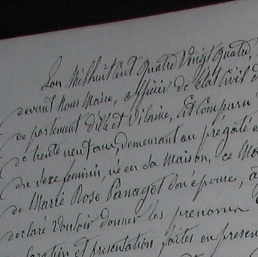 L'an Mil huit cent quatre Vingt quatre,
devant Nous Maire, officier de l'état Civil d
de partement d'Ille et Vilaine, est Comparu
de trente neuf ans demeurant au
du Sexe feminin, née en sa Maison, ce
de Marie Rose Panaget son épouse, à
declaré Vouloir donner les prenoms
et presentation faites en presen